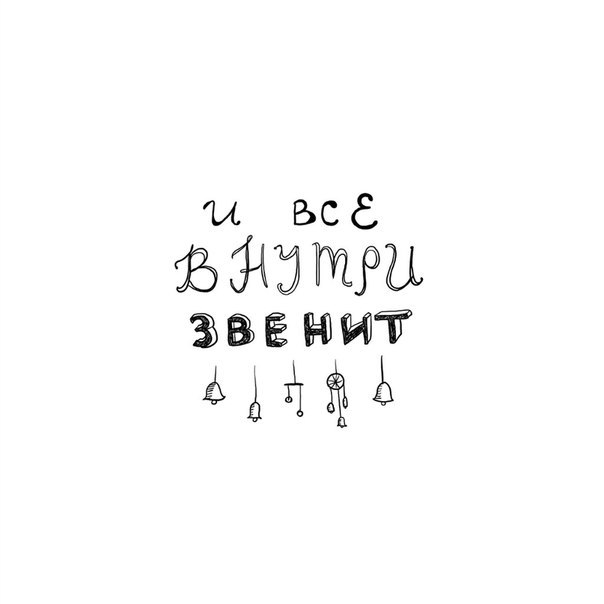 и все
внутри
звенит